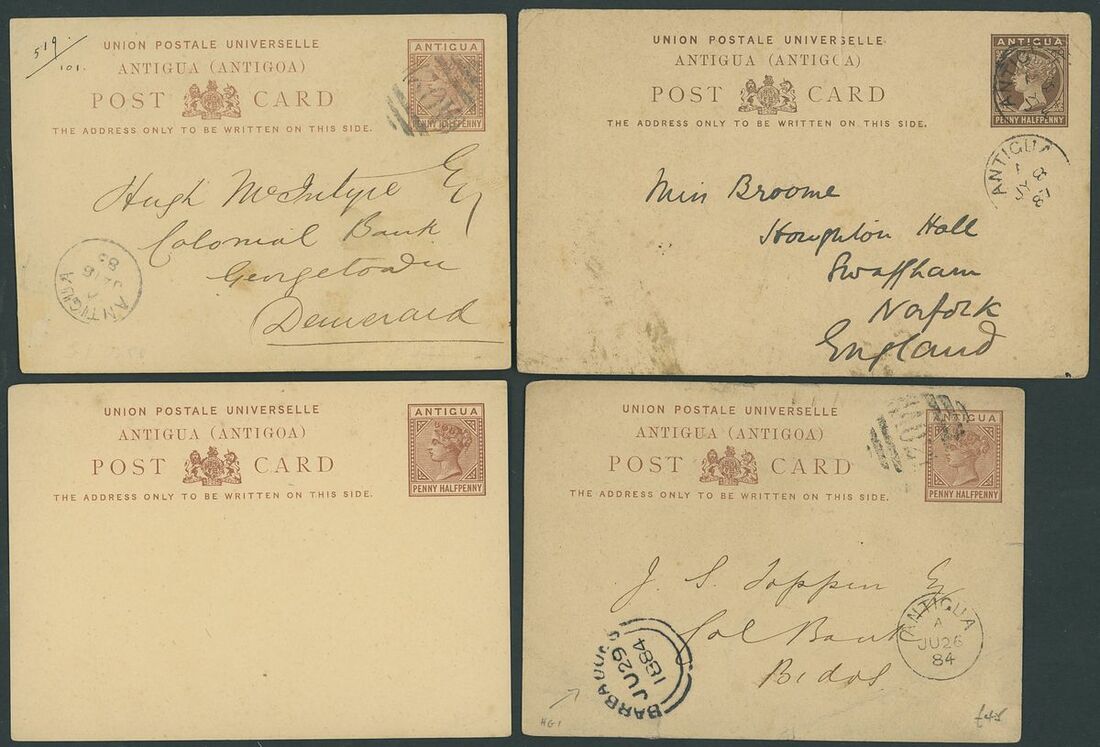 519
101.
UNION POSTALE UNIVERSELLE
ANTIGUA (ANTIGOA)
POST CARD
THE ADDRESS ONLY TO BE WRITTEN ON THIS SIDE.
ANTIGUA
PENNY HALFPENNY
Hugh McIntyre Esq
Colonial Bank
Georgetown
Demerara
ANTIGUA
UNION POSTALE UNIVERSELLE
ANTIGUA (ANTIGOA)
POST CARD
THE ADDRESS ONLY TO BE WRITTEN ON THIS SIDE.
ANTIGUA
PENNY HALFPENNY
ANTIGUA
ANTIGUA
Miss Broome
Houghton Hall
Swaffham
Norfolk
England
UNION POSTALE UNIVERSELLE
ANTIGUA (ANTIGOA)
POST CARD
THE ADDRESS ONLY TO BE WRITTEN ON THIS SIDE.
ANTIGUA
PENNY HALFPENNY
UNION POSTALE UNIVERSELLE
ANTIGUA (ANTIGOA)
POST CARD
THE ADDRESS ONLY TO BE WRITTEN ON THIS SIDE.
A02
ANTIGUA
PENNY HALFPENNY
J. S. Toppin
Col Bank
Bidos
ANTIGUA
A
JU 26
84
BARBADOS
JU 29
1884
HG1
£45